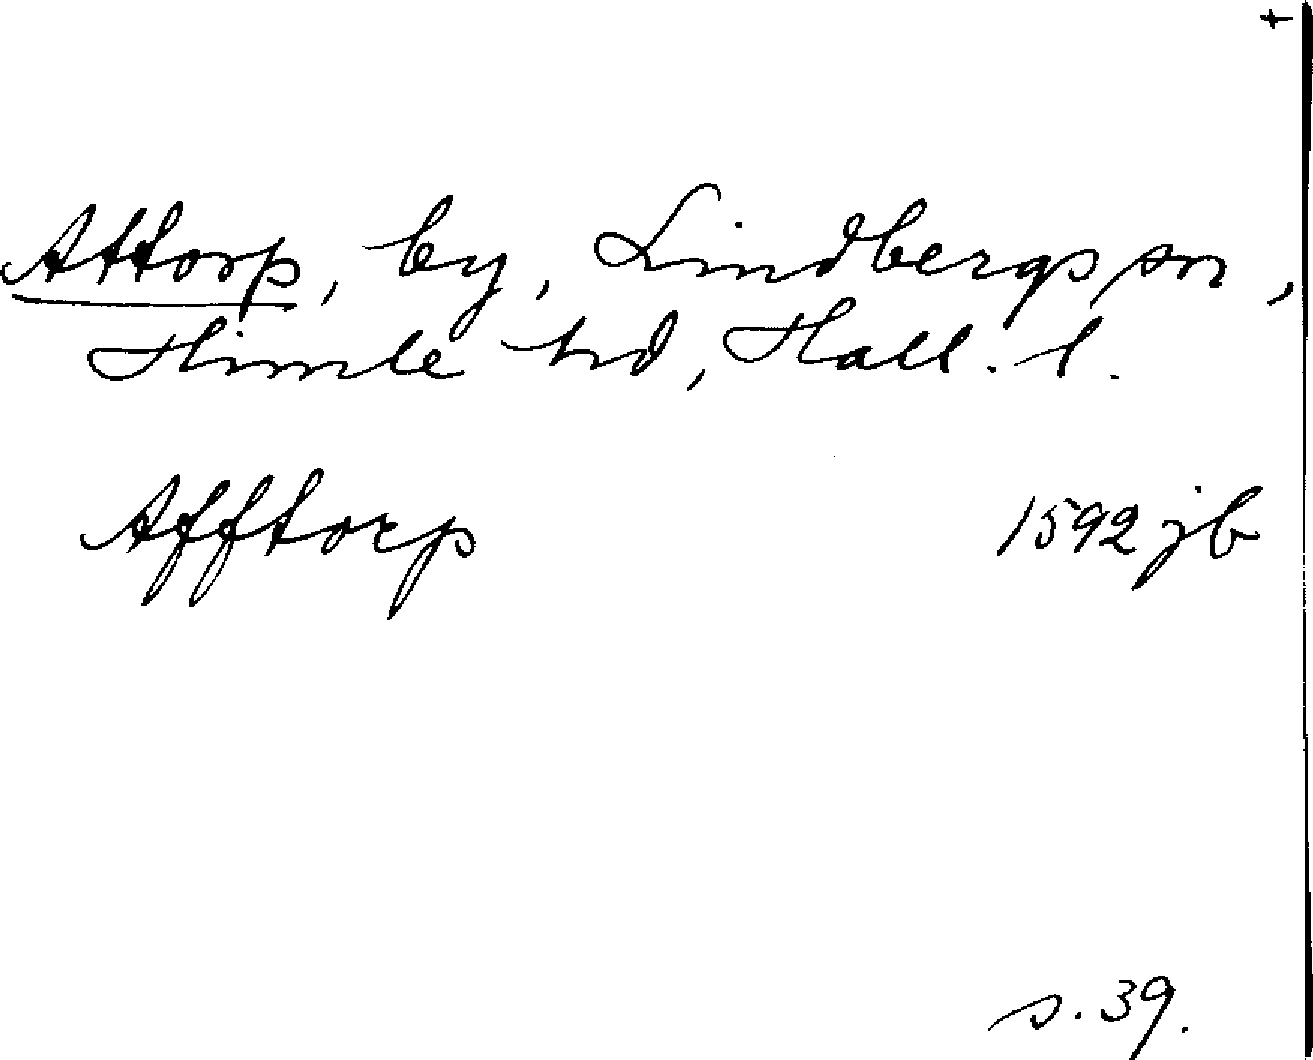 Attorp, by, Lindbergs sn,
Himle hd, Hall. l.
Afftorp 1592 jb
s. 39.